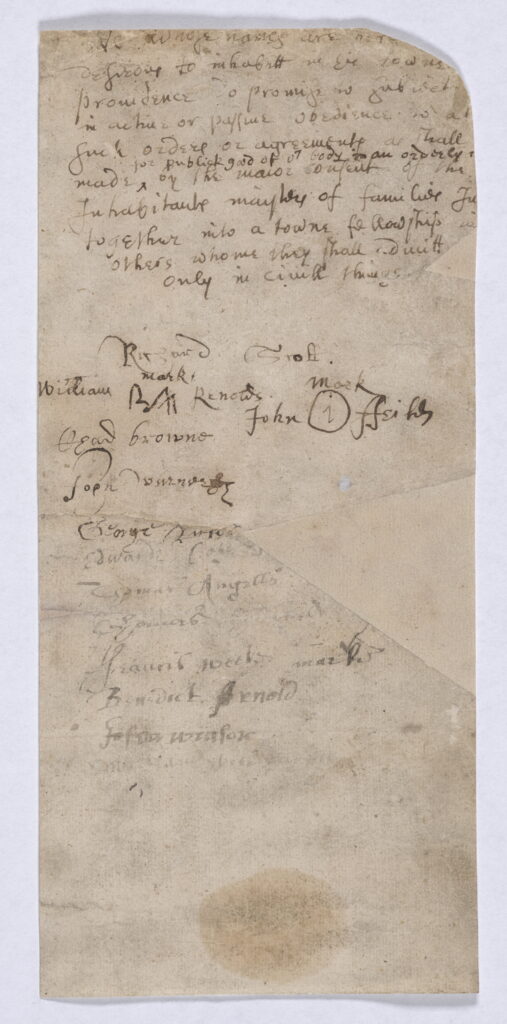 We whose names are here
desirous to inhabitt in ye towne
providence do promise to subiect
in active or passive obedience to a
such orders or agreements as shall
for publick good of or body in an orderly
made by the maior consent of the
Inhabitants maisters of families In
together into a towne fellowship
others whome they shall admitt
only in civill things
Richard Scott
mark
William Renolds
mark
John ffeild
Chad browne
John warner
George
Edward
Thomas Angell
Thomas
Francis weekes marke
Benedict Arnold
Joshua winsor